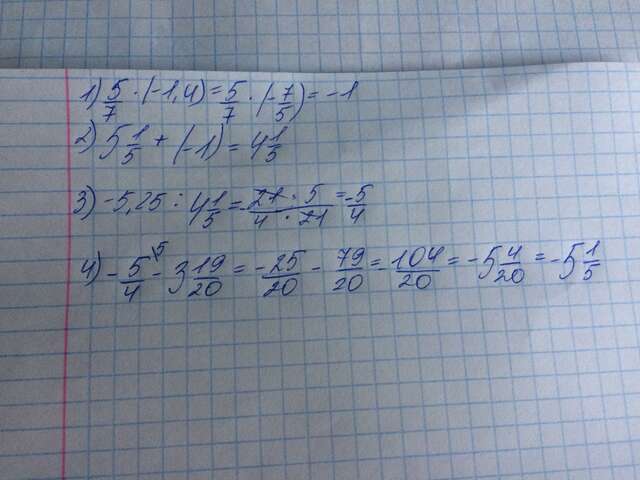 1) 5/7 · (-1,4) = 5/7 · (-7/5) = -1
2) 5 1/5 + (-1) = 4 1/5
3) -5,25 : 4 1/5 = -21 · 5/4 · 21 = -5/4
4) -5/4 \5 - 3 19/20 = -25/20 - 79/20 = -104/20 = -5 4/20 = -5 1/5